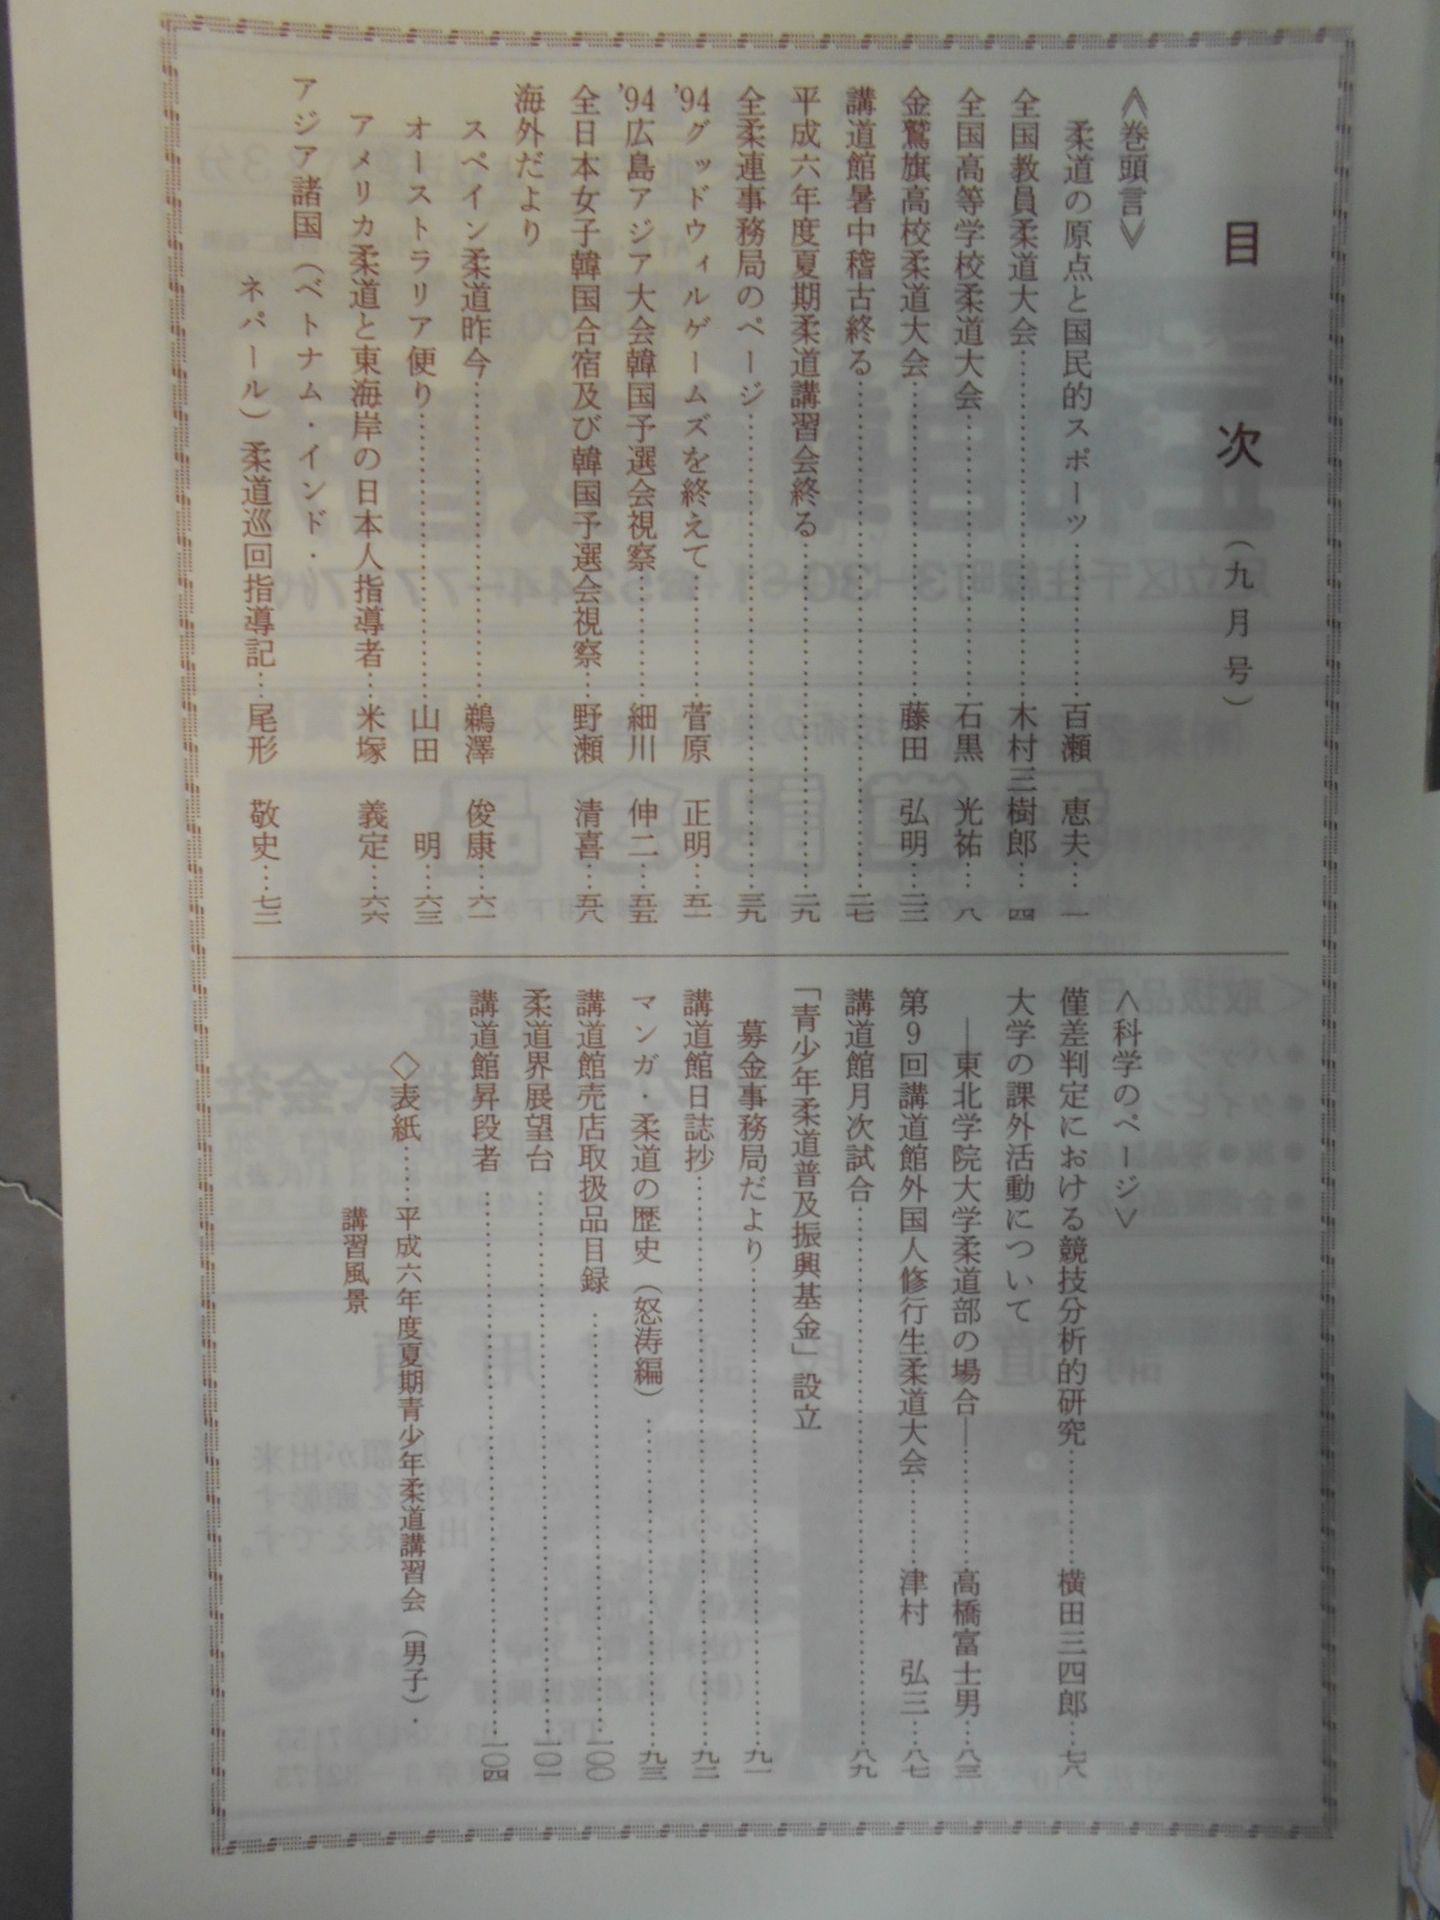 目次（九月号）
≪巻頭言≫
柔道の原点と国民的スポーツ……百瀬 恵夫…一
全国教員柔道大会……木村三樹郎…四
全国高等学校柔道大会……石黒 光祐…八
金鷲旗高校柔道大会……藤田 弘明…二三
講道館暑中稽古終る……二七
平成六年度夏期柔道講習会終る……二九
全柔連事務局のページ……三九
'94グッドウィルゲームズを終えて……菅原 正明…五一
'94広島アジア大会韓国予選会視察……細川 伸二…五五
全日本女子韓国合宿及び韓国予選会視察…野瀬 清喜…五八
海外だより
スペイン柔道昨今……鵜澤 俊康…六一
オーストラリア便り……山田 明…六三
アメリカ柔道と東海岸の日本人指導者…米塚 義定…六六
アジア諸国（ベトナム・インド・
ネパール）柔道巡回指導記…尾形 敬史…七二
＜科学のページ＞
僅差判定における競技分析的研究……横田三四郎…七八
大学の課外活動について
―東北学院大学柔道部の場合―……高橋富士男…八三
第9回講道館外国人修行生柔道大会……津村 弘三…八七
講道館月次試合……八九
「青少年柔道普及振興基金」設立
募金事務局だより……九一
講道館日誌抄……九二
マンガ・柔道の歴史（怒涛編）……九三
講道館売店取扱品目録……一〇〇
柔道界展望台……一〇一
講道館昇段者……一〇四
◇表紙……平成六年度夏期青少年柔道講習会（男子）・
講習風景